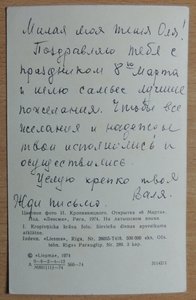 Милая моя тётя Оля!
Поздравляю тебя с
праздником 8ое Марта
и шлю самые лучшие
пожелания. Чтобы все
желания и надежды
твои исполнились и
осуществились.
Целую крепко твоя
Валя.
Жди письмо.
Цветное фото И. Кропивницкого. Открытка «8 Марта»
Изд. «Лиесма», Рига, 1974. На латышском языке
I. Kropivņicka krāsu foto. Sieviešu dienas apsveikuma
atklātne.
Izdevn. «Liesma», Rīgā,
Rīgas Paraugtip.
© «Liesma», 1974